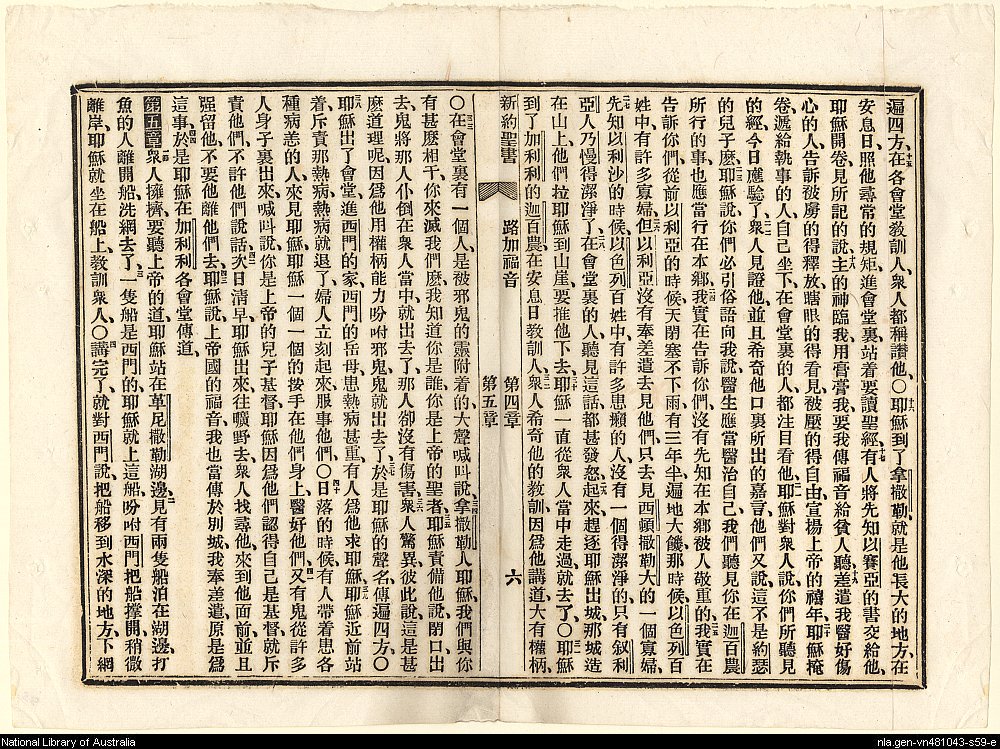 遍四方在各會堂教訓人衆人都稱讚他○耶穌到了拿撒勒就是他長大的地方在
安息日照他尋常的規矩進會堂裏站着要讀聖經有人將先知以賽亞的書交給他
耶穌開卷見所記的說主的神臨我用膏膏我要我傳福音給貧人聽差遣我醫好傷
心的人告訴被虜的得釋放瞎眼的得看見被壓的得自由宣揚上帝的禧年耶穌掩
卷遞給執事的人自己坐下在會堂裏的人都注目看他耶穌對衆人說你們所聽見
的經今日應驗了衆人見證他並且希奇他口裏所出的嘉言他們又說這不是約瑟
的兒子麽耶穌說你們必引俗語向我說醫生應當醫治自己我們聽見你在迦百農
所行的事也應當行在本鄉我實在告訴你們沒有先知在本鄉被人敬重的我實在
告訴你們從前以利亞的時候天閉塞不下雨有三年半遍地大饑那時候以色列百
姓中有許多寡婦但以利亞沒有奉差遣去見他們只去見西頓撒勒大的一個寡婦
先知以利沙的時候以色列百姓中有許多患癩的人沒有一個得潔淨的只有叙利
亞人乃慢得潔淨了在會堂裏的人聽見這話都甚發怒起來趕逐耶穌出城那城造
在山上他們拉耶穌到山崖要推他下去耶穌一直從衆人當中走過就去了○耶穌
到了加利利的迦百農在安息日教訓人衆人希奇他的教訓因爲他講道大有權柄
新約聖書 路加福音 第四章 六
第五章
○在會堂裏有一個人是被邪鬼的靈附着的大聲喊叫說拿撒勒人耶穌我們與你
有甚麽相干你來滅我們麽我知道你是誰你是上帝的聖者耶穌責備他說閉口出
去鬼將那人仆倒在衆人當中就出去了那人卻沒有傷害衆人驚異彼此說這是甚
麽道理呢因爲他用權柄能力吩咐邪鬼鬼就出去了於是耶穌的聲名傳遍四方○
耶穌出了會堂進西門的家西門的岳母患熱病甚重有人爲他求耶穌耶穌近前站
着斥責那熱病熱病就退了婦人立刻起來服事他們○日落的時候有人帶着患各
種病恙的人來見耶穌耶穌一個一個的按手在他們身上醫好他們又有鬼從許多
人身子裏出來喊叫說你是上帝的兒子基督耶穌因爲他們認得自己是基督就斥
責他們不許他們說話次日清早耶穌出來往曠野去衆人找尋他來到他面前並且
强留他不要他離他們去耶穌說上帝國的福音我也當傳於別城我奉差遣原是爲
這事於是耶穌在加利利各會堂傳道
第五章衆人擁擠要聽上帝的道耶穌站在革尼撒勒湖邊見有兩隻船泊在湖邊打
魚的人離開船洗網去了一隻船是西門的耶穌就上這船吩咐西門把船撑開稍微
離岸耶穌就坐在船上教訓衆人○講完了就對西門說把船移到水深的地方下網
National Library of Australia
nla.gen-vn481043-s59-e